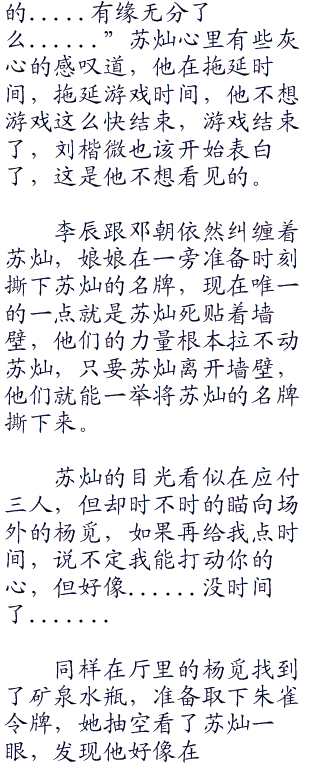 的.....有缘无分了
么......”苏灿心里有些灰
心的感叹道，他在拖延时
间，拖延游戏时间，他不想
游戏这么快结束，游戏结束
了，刘楷微也该开始表白
了，这是他不想看见的。
李辰跟邓朝依然纠缠着
苏灿，娘娘在一旁准备时刻
撕下苏灿的名牌，现在唯一
的一点就是苏灿死贴着墙
壁，他们的力量根本拉不动
苏灿，只要苏灿离开墙壁，
他们就能一举将苏灿的名牌
撕下来。
苏灿的目光看似在应付
三人，但却时不时的瞄向场
外的杨觅，如果再给我点时
间，说不定我能打动你的
心，但好像......没时间
了.......
同样在厅里的杨觅找到
了矿泉水瓶，准备取下朱雀
令牌，她抽空看了苏灿一
眼，发现他好像在